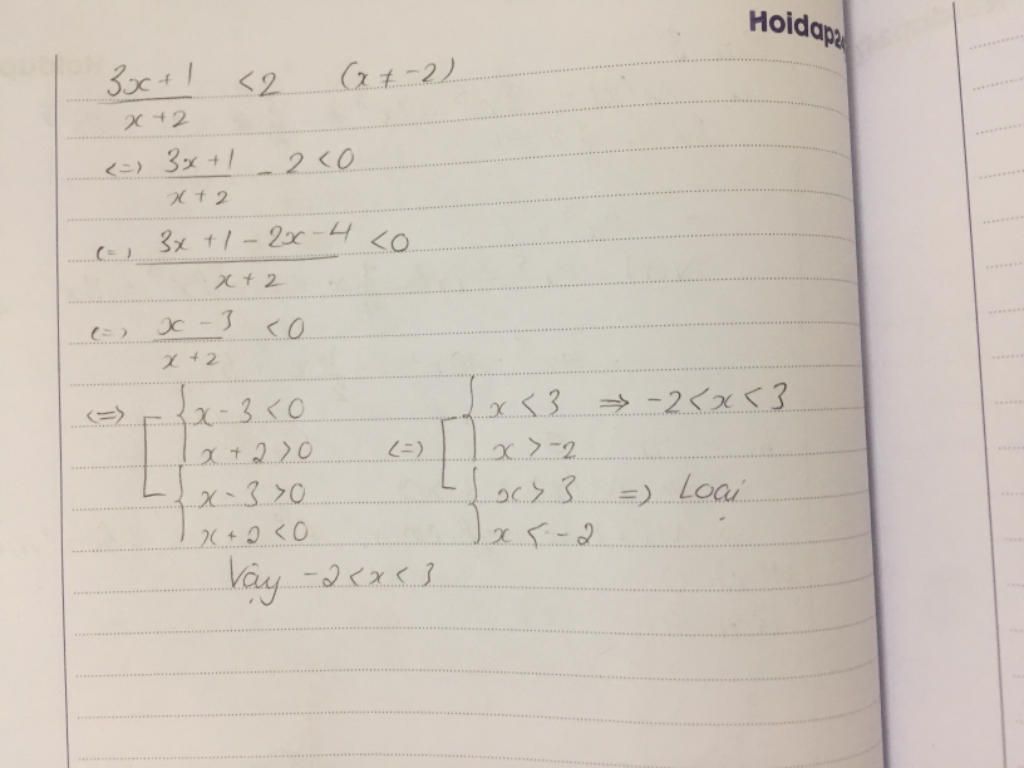 Hoidap24
3x + 1 / x + 2 < 2 (x ≠ -2)
<=> 3x + 1 / x + 2 - 2 < 0
<=> 3x + 1 - 2x - 4 / x + 2 < 0
<=> x - 3 / x + 2 < 0
<=> [ { x - 3 < 0 <=> [ { x < 3 => -2 < x < 3
x + 2 > 0 x > -2
{ x - 3 > 0 { x > 3 => Loại
x + 2 < 0 x < -2
Vậy -2 < x < 3